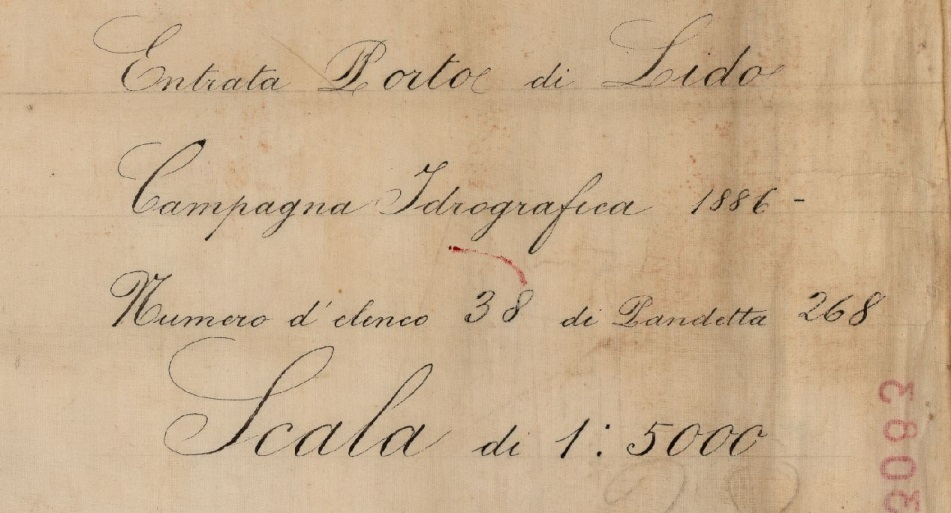 Entrata Porto di Lido
Campagna Idrografica 1886 -
Numero d'elenco 38 di Pandetta 268
Scala di 1:5000
3093